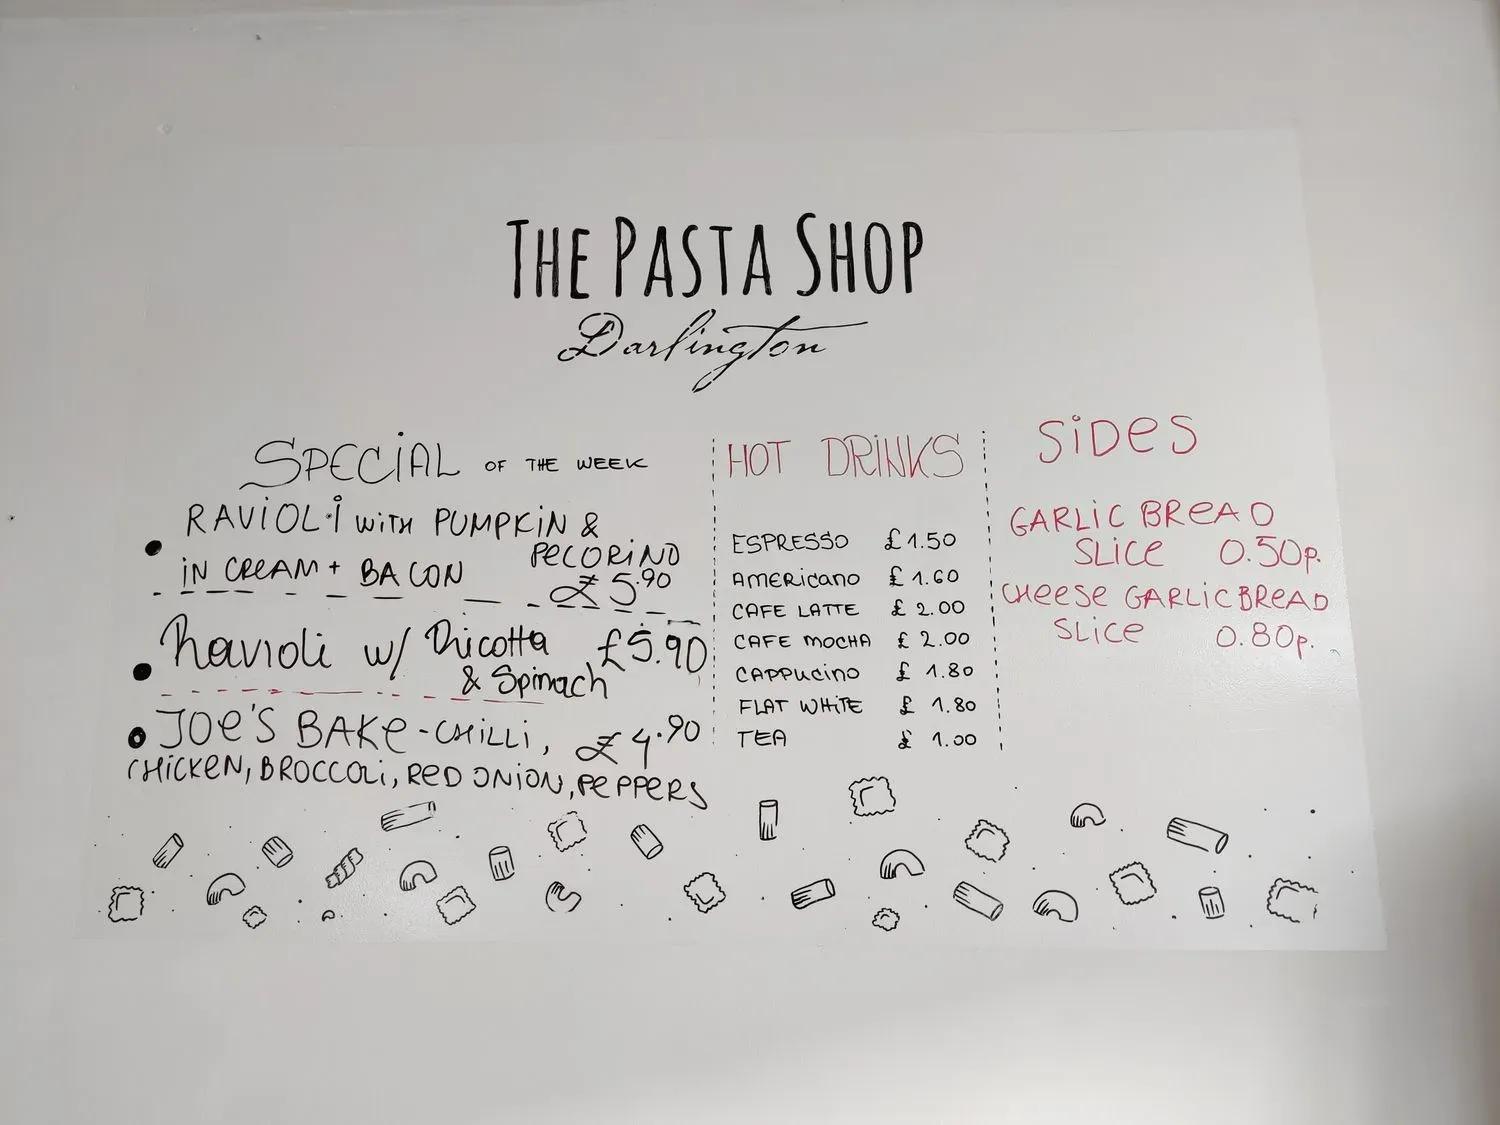 THE PASTA SHOP
Darlington
SPECiAL OF THE WEEK
• RAViOLi WiTH PUMPKiN &
PECORiNO
iN CREAM + BACON
£5.90
• Ravioli w/ Ricotta £5.90
& Spinach
• JOe'S BAKe - CHiLLi, £4.90
CHiCKeN, BROCCOLi, ReD ONiON, PePPERS
HOT DRiNKS
ESPRESSO £1.50
AMERiCANO £1.60
CAFE LATTE £2.00
CAFE MOCHA £2.00
CAPPUCiNO £1.80
FLAT WHiTE £1.80
TEA £1.00
SiDeS
GARLiC BReAD
SLiCe 0.50p.
CHeeSe GARLiC BReAD
SLiCe 0.80p.